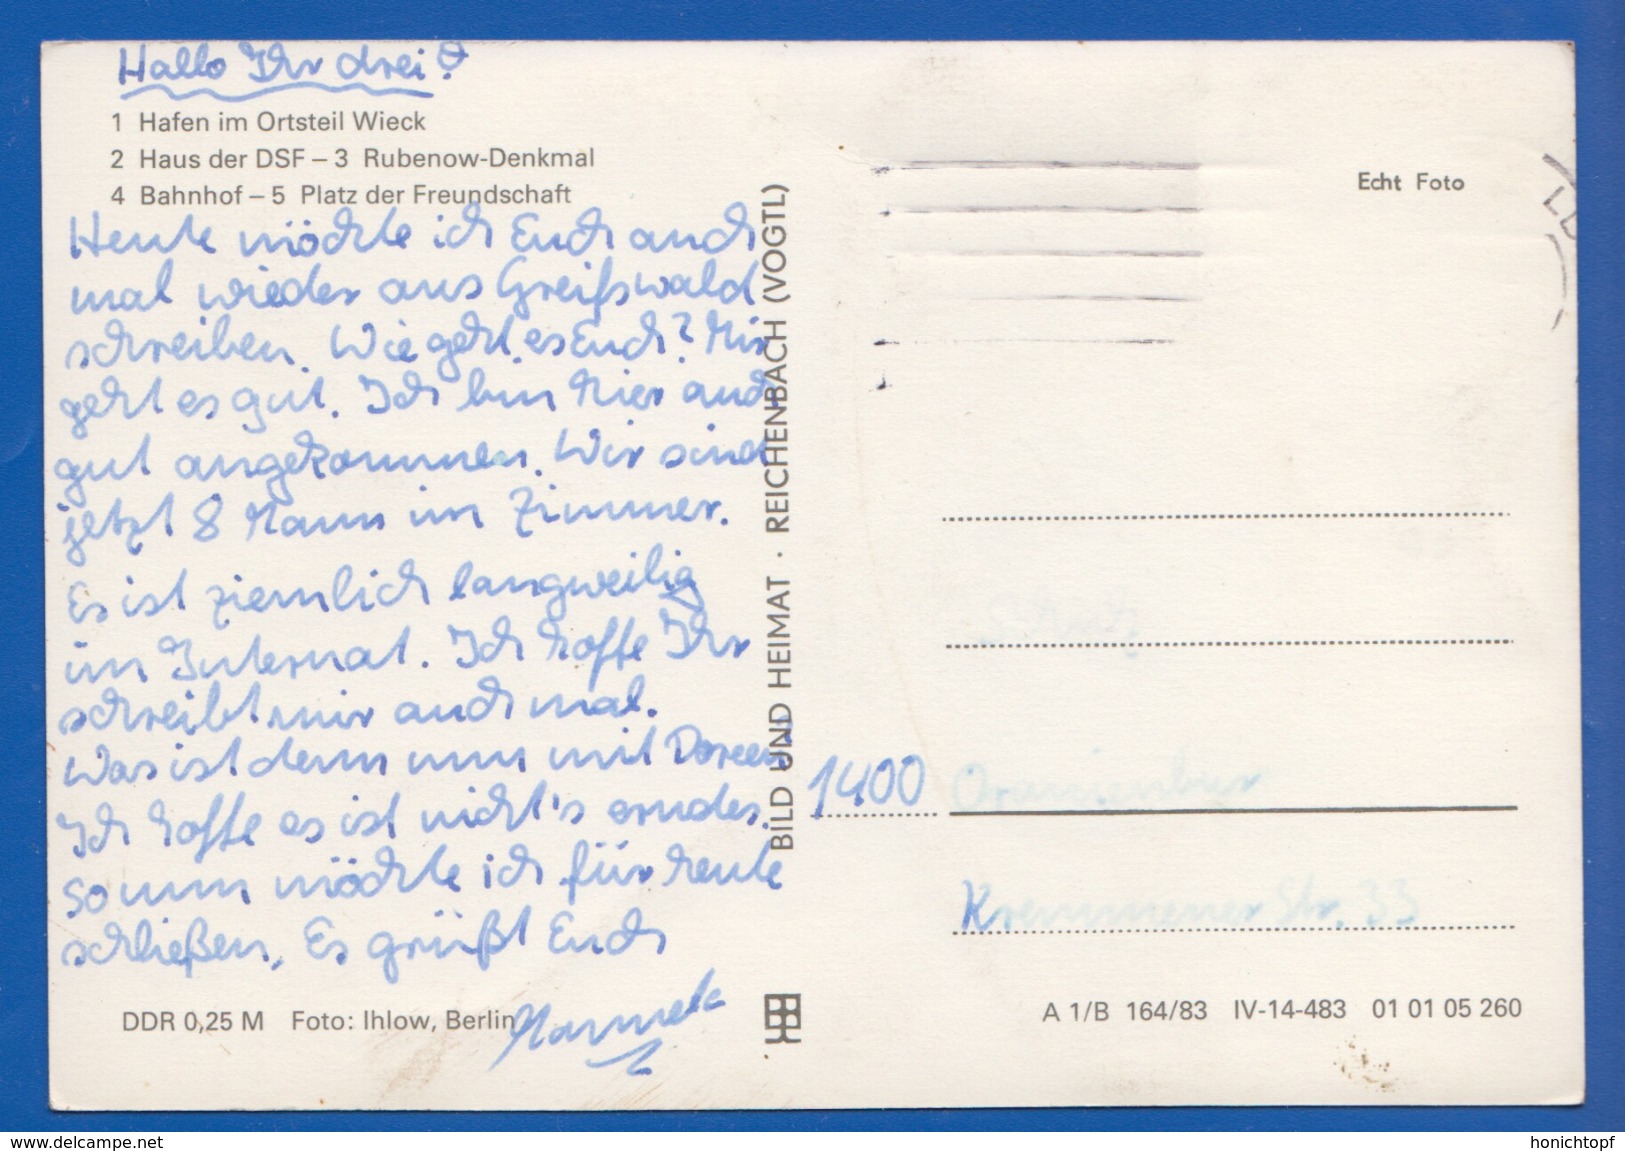 Hallo Ihr drei!
1 Hafen im Ortsteil Wieck
2 Haus der DSF – 3 Rubenow-Denkmal
4 Bahnhof – 5 Platz der Freundschaft
Heute möchte ich Euch auch
mal wieder aus Greifswald
schreiben. Wie geht es Euch? Mir
geht es gut. Ich bin hier auch
gut angekommen. Wir sind
jetzt 8 Mann im Zimmer.
Es ist ziemlich langweilig
im Internat. Ich hoffe Ihr
schreibt mir auch mal.
Was ist denn nun mit Doreen?
Ich hoffe es ist nicht's ernstes.
So nun möchte ich für heute
schließen. Es grüßt Euch
DDR 0,25 M Foto: Ihlow, Berlin
BILD UND HEIMAT · REICHENBACH (VOGTL)
Echt Foto
1400 Oranienburg
Kremmener Str. 33
A 1/B 164/83 IV-14-483 01 01 05 260
www.delcampe.net
honichtopf